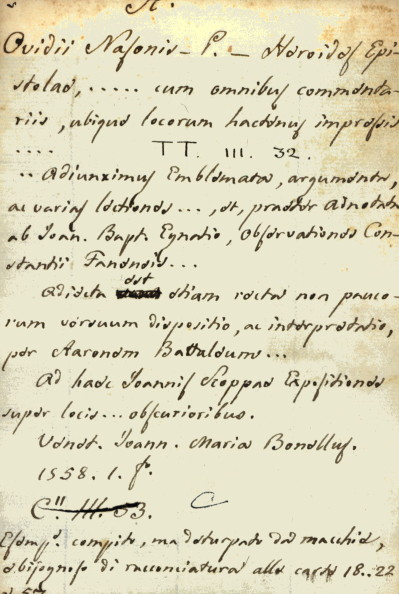 Ovidii Nasonis - P. - Heroides Epi-
stolae, ..... cum omnibus commenta-
riis, ubique locorum hactenus impressis
.... TT. III. 32.
.. Adiunximus Emblemata, argumenta,
ac varias lectiones ..., et, praeter adnotata
ab Ioan. Bapt. Egnatio, Observationes Con-
stantii Fanensis...
Adiecta est etiam recta non pauco-
rum versuum dispositio, ac interpretatio,
per Aaronem Battaleum...
Ad haec Ioannis Scoppae Expositiones
super locis... obscurioribus.
Venet. Ioann. Maria Bonellus.
1558. 1. fo.
C" III. 33.
C
Esempe. compito, ma deturpato da macchie,
e bisognoso di racconciatura alle carte 18..22
e 57